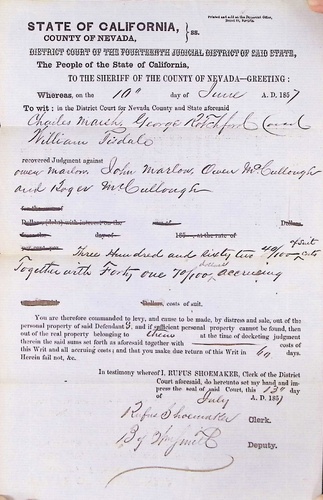 Printed and sold at the Democrat Office,
STATE OF CALIFORNIA, } SS.
COUNTY OF NEVADA,
DISTRICT COURT OF THE FOURTEENTH JUDICIAL DISTRICT OF SAID STATE,
The People of the State of California,
TO THE SHERIFF OF THE COUNTY OF NEVADA—GREETING:
Whereas, on the 10th day of June A. D. 1857
To wit: in the District Court for Nevada County and State aforesaid
Charles Marsh, George Rotchford and
William Tisdale
recovered Judgment against
Owen Marlow, John Marlow, Owen McCullough
and Roger McCullough
Dollars,
day of 185 at the rate of
Three Hundred and Sixty two 40/100 of Suit
Together with Forty one 70/100 dollars accruing Costs
Dollars, costs of suit.
You are therefore commanded to levy, and cause to be made, by distress and sale, out of the
personal property of said Defendants, and if sufficient personal property cannot be found, then
out of the real property belonging to them at the time of docketing judgment
therein the said sums set forth as aforesaid together with costs of
this Writ and all accruing costs; and that you make due return of this Writ in 60 days.
Herein fail not, &c.
In testimony whereof I, RUFUS SHOEMAKER, Clerk of the District
Court aforesaid, do hereunto set my hand and im-
press the seal of said Court, this 13th day
of July A. D. 1857
Rufus Shoemaker Clerk.
By Wm Smith Deputy.